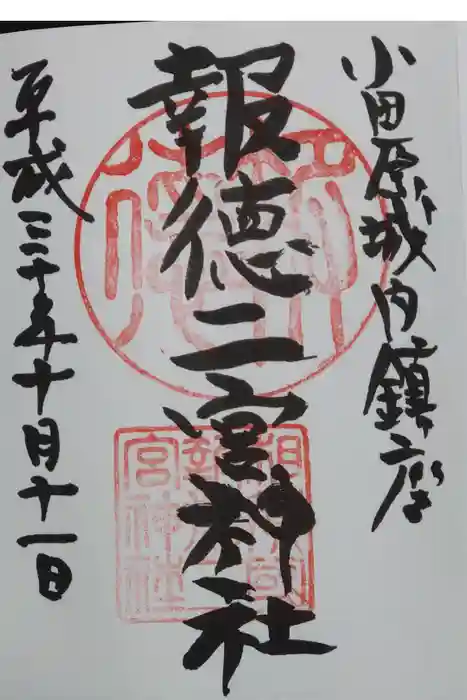 小田原城内鎮座
報徳二宮神社
平成三十年十月十一日
宮神社